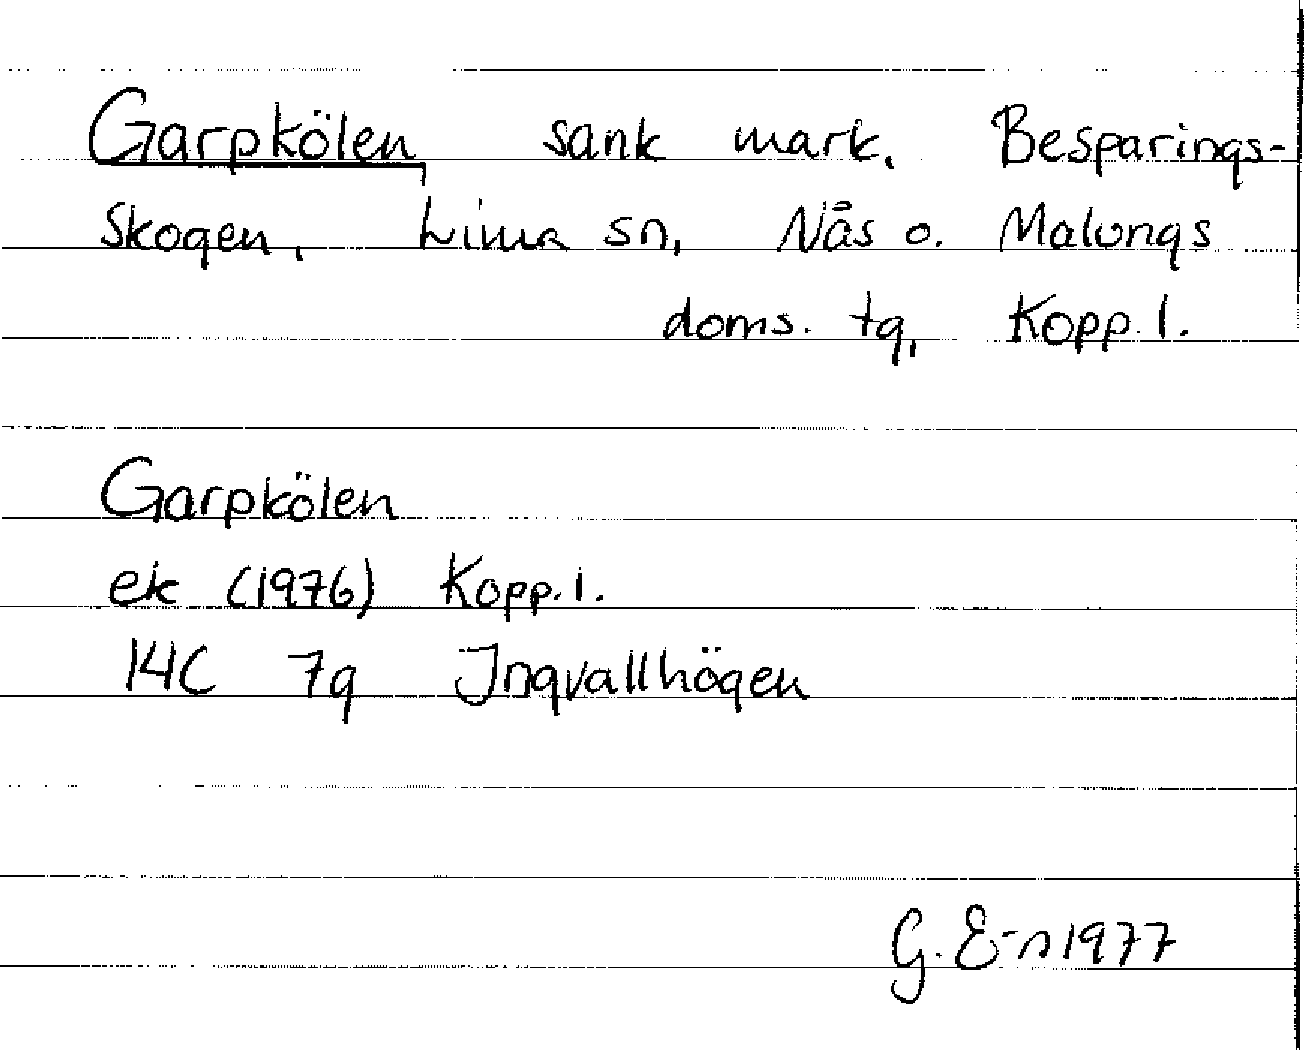 Garpkölen, sank mark. Besparings-
Skogen, Lima sn, Nås o. Malungs
doms. tg, Kopp. l.
Garpkölen
ek (1976) Kopp. l.
14C 7g Ingvallhögen
G. E-n 1977